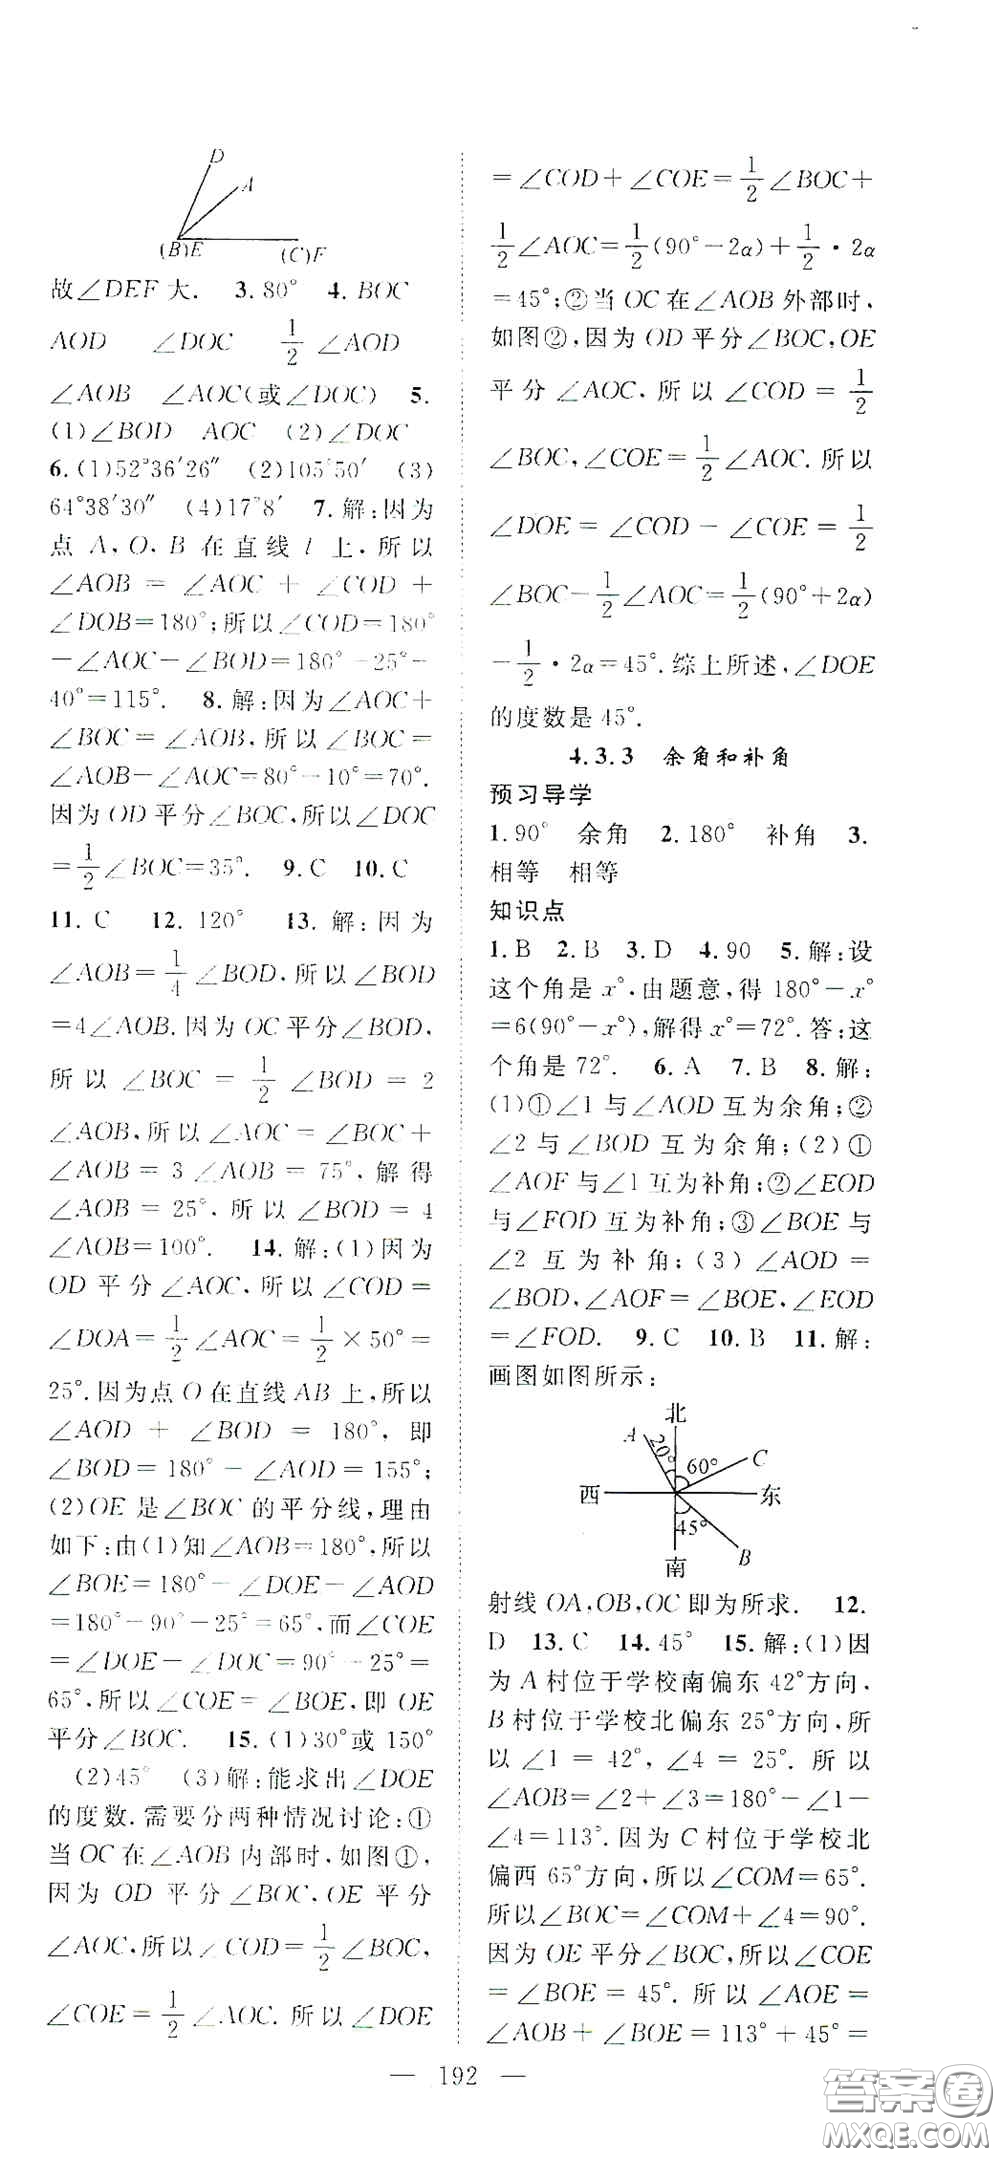 D
A
(B)E
(C)F
故∠DEF大. 3.80° 4.BOC
AOD ∠DOC 1/2∠AOD
∠AOB ∠AOC(或∠DOC) 5.
(1)∠BOD AOC (2)∠DOC
6.(1)52°36′26″ (2)105°50′ (3)
64°38′30″ (4)17°8′ 7.解:因为
点A,O,B在直线l上,所以
∠AOB=∠AOC+∠COD+
∠DOB=180°;所以∠COD=180°
-∠AOC-∠BOD=180°-25°-
40°=115°. 8.解:因为∠AOC+
∠BOC=∠AOB,所以∠BOC=
∠AOB-∠AOC=80°-10°=70°.
因为OD平分∠BOC,所以∠DOC
=1/2∠BOC=35°. 9.C 10.C
11.C 12.120° 13.解:因为
∠AOB=1/4∠BOD,所以∠BOD
=4∠AOB.因为OC平分∠BOD,
所以∠BOC=1/2∠BOD=2
∠AOB,所以∠AOC=∠BOC+
∠AOB=3∠AOB=75°,解得
∠AOB=25°.所以∠BOD=4
∠AOB=100°. 14.解:(1)因为
OD平分∠AOC,所以∠COD=
∠DOA=1/2∠AOC=1/2×50°=
25°.因为点O在直线AB上,所以
∠AOD+∠BOD=180°,即
∠BOD=180°-∠AOD=155°;
(2)OE是∠BOC的平分线,理由
如下:由(1)知∠AOB=180°,所以
∠BOE=180°-∠DOE-∠AOD
=180°-90°-25°=65°.而∠COE
=∠DOE-∠DOC=90°-25°=
65°,所以∠COE=∠BOE,即OE
平分∠BOC. 15.(1)30°或150°
(2)45° (3)解:能求出∠DOE
的度数.需要分两种情况讨论:①
当OC在∠AOB内部时,如图①,
因为OD平分∠BOC,OE平分
∠AOC,所以∠COD=1/2∠BOC,
∠COE=1/2∠AOC.所以∠DOE
=∠COD+∠COE=1/2∠BOC+
1/2∠AOC=1/2(90°-2α)+1/2·2α
=45°;②当OC在∠AOB外部时,
如图②,因为OD平分∠BOC,OE
平分∠AOC,所以∠COD=1/2
∠BOC,∠COE=1/2∠AOC.所以
∠DOE=∠COD-∠COE=1/2
∠BOC-1/2∠AOC=1/2(90°+2α)
-1/2·2α=45°.综上所述,∠DOE
的度数是45°.
4.3.3 余角和补角
预习导学
1.90° 余角 2.180° 补角 3.
相等 相等
知识点
1.B 2.B 3.D 4.90 5.解:设
这个角是x°.由题意,得180°-x°
=6(90°-x°),解得x°=72°.答:这
个角是72°. 6.A 7.B 8.解:
(1)①∠1与∠AOD互为余角;②
∠2与∠BOD互为余角;(2)①
∠AOF与∠1互为补角;②∠EOD
与∠FOD互为补角;③∠BOE与
∠2互为补角;(3)∠AOD=
∠BOD,∠AOF=∠BOE,∠EOD
=∠FOD. 9.C 10.B 11.解:
画图如图所示:
北
A
20°
60°
C
西
东
45°
B
南
射线OA,OB,OC即为所求. 12.
D 13.C 14.45° 15.解:(1)因
为A村位于学校南偏东42°方向,
B村位于学校北偏东25°方向,所
以∠1=42°,∠4=25°.所以
∠AOB=∠2+∠3=180°-∠1-
∠4=113°.因为C村位于学校北
偏西65°方向,所以∠COM=65°.
所以∠BOC=∠COM+∠4=90°.
因为OE平分∠BOC,所以∠COE
=∠BOE=45°.所以∠AOE=
∠AOB+∠BOE=113°+45°=
— 192 —
答案圈
MXQE.COM